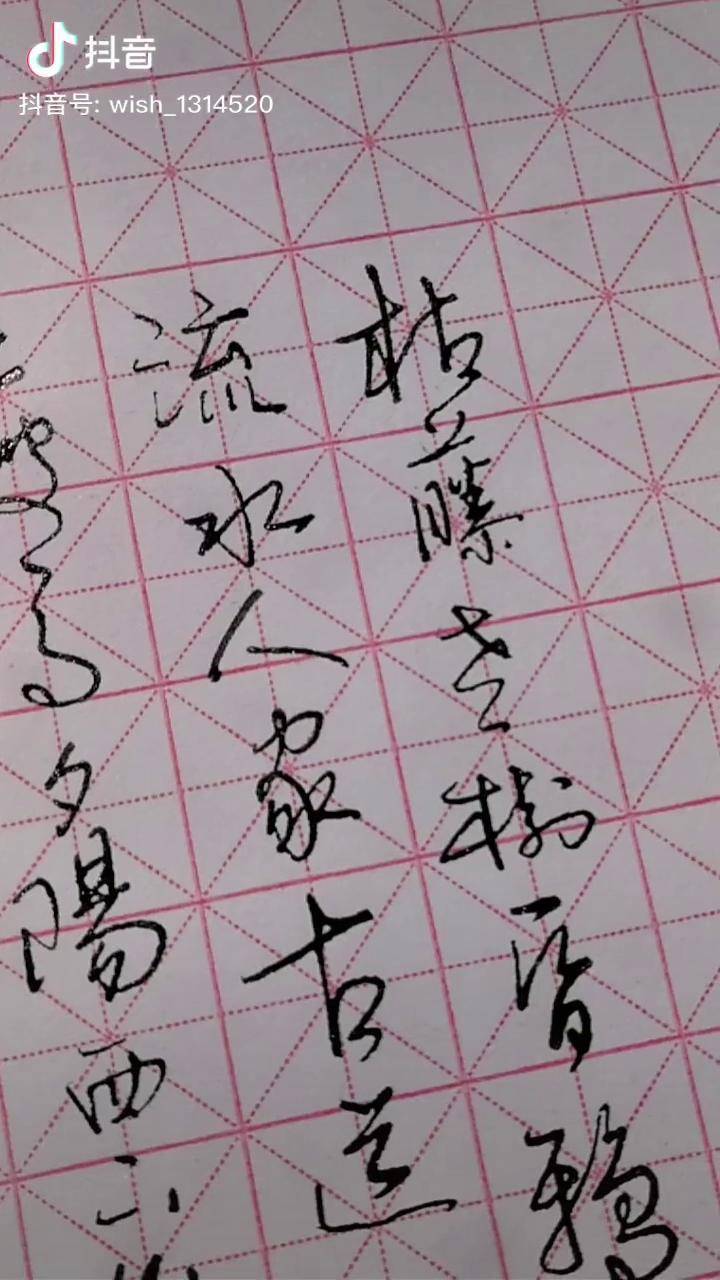 抖音
抖音号: wish_1314520
枯藤老樹昏鴉
流水人家古道
馬夕陽西下